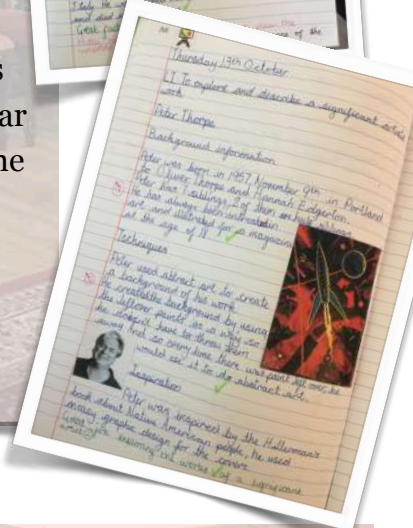 Italy. He w
and died o
Great fact
s
ar
ne
of the
Thursday 13th October
L.I To explore and describe a significant artists
work
Peter Thorpe
Background information
Peter was born in 1957 November 9th in Portland
to Oliver Thorpe and Hannah Edgerton.
Peter has 7 siblings, 2 of them
He has always been interested in
art and illustrated for a magazine
at the age of 18
Techniques
Peter used abstract art to create
a background of his work.
He creates the background by using
his leftover paints as a way so
he doesn't have to throw them
away. And so every time there was paint left over, he
would use it to do abstract art.
Inspiration
Peter was inspired by the
book about Native American people, he used
graphic design for the covers.
Great
of a significant